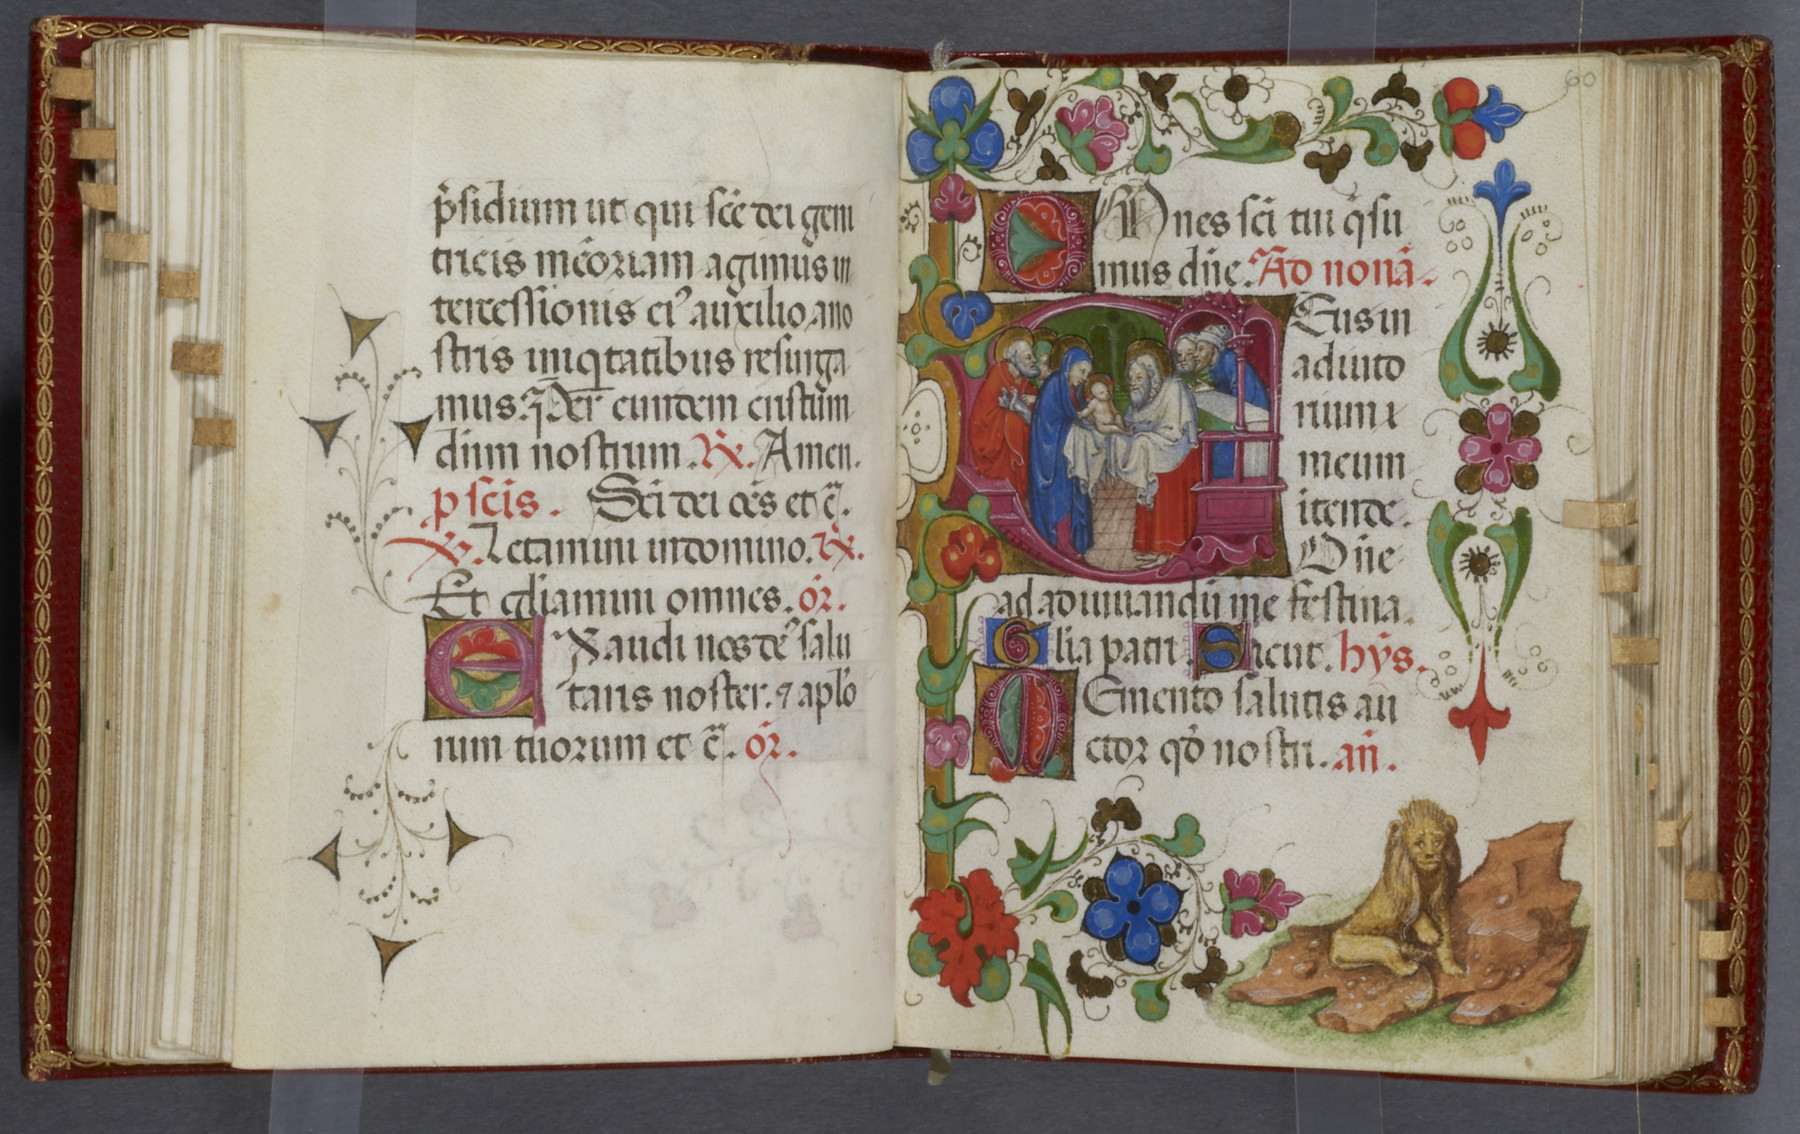 p̄sidium ut qui sc̄e dei geni
tricis mēoriam agimus in
tercessionis ei⁹ auxilio a nr̄o
stris iniq̄tatibus resurga
mus. ꝓ Per eundem cristum
dium nostrum. ℟. Amen.
p scis. Sci dei oēs et c̄.
℣. Letamini in domino. ℟.
Et gliamini omnes. or̄.
Exaudi nos de⁹ salu
taris noster. ⁊ aplo
rum tuorum et c̄. or̄.
60
Omnes sci tui q̄su
mus dn̄e. Ad nonā.
Deus in
adiuto
rium
meum
itende.
Dn̄e
ad adiuuandū me festina.
Glia patri. Sicut. hȳs.
Memento salutis au
ctor qd̄ nostri. an̄.